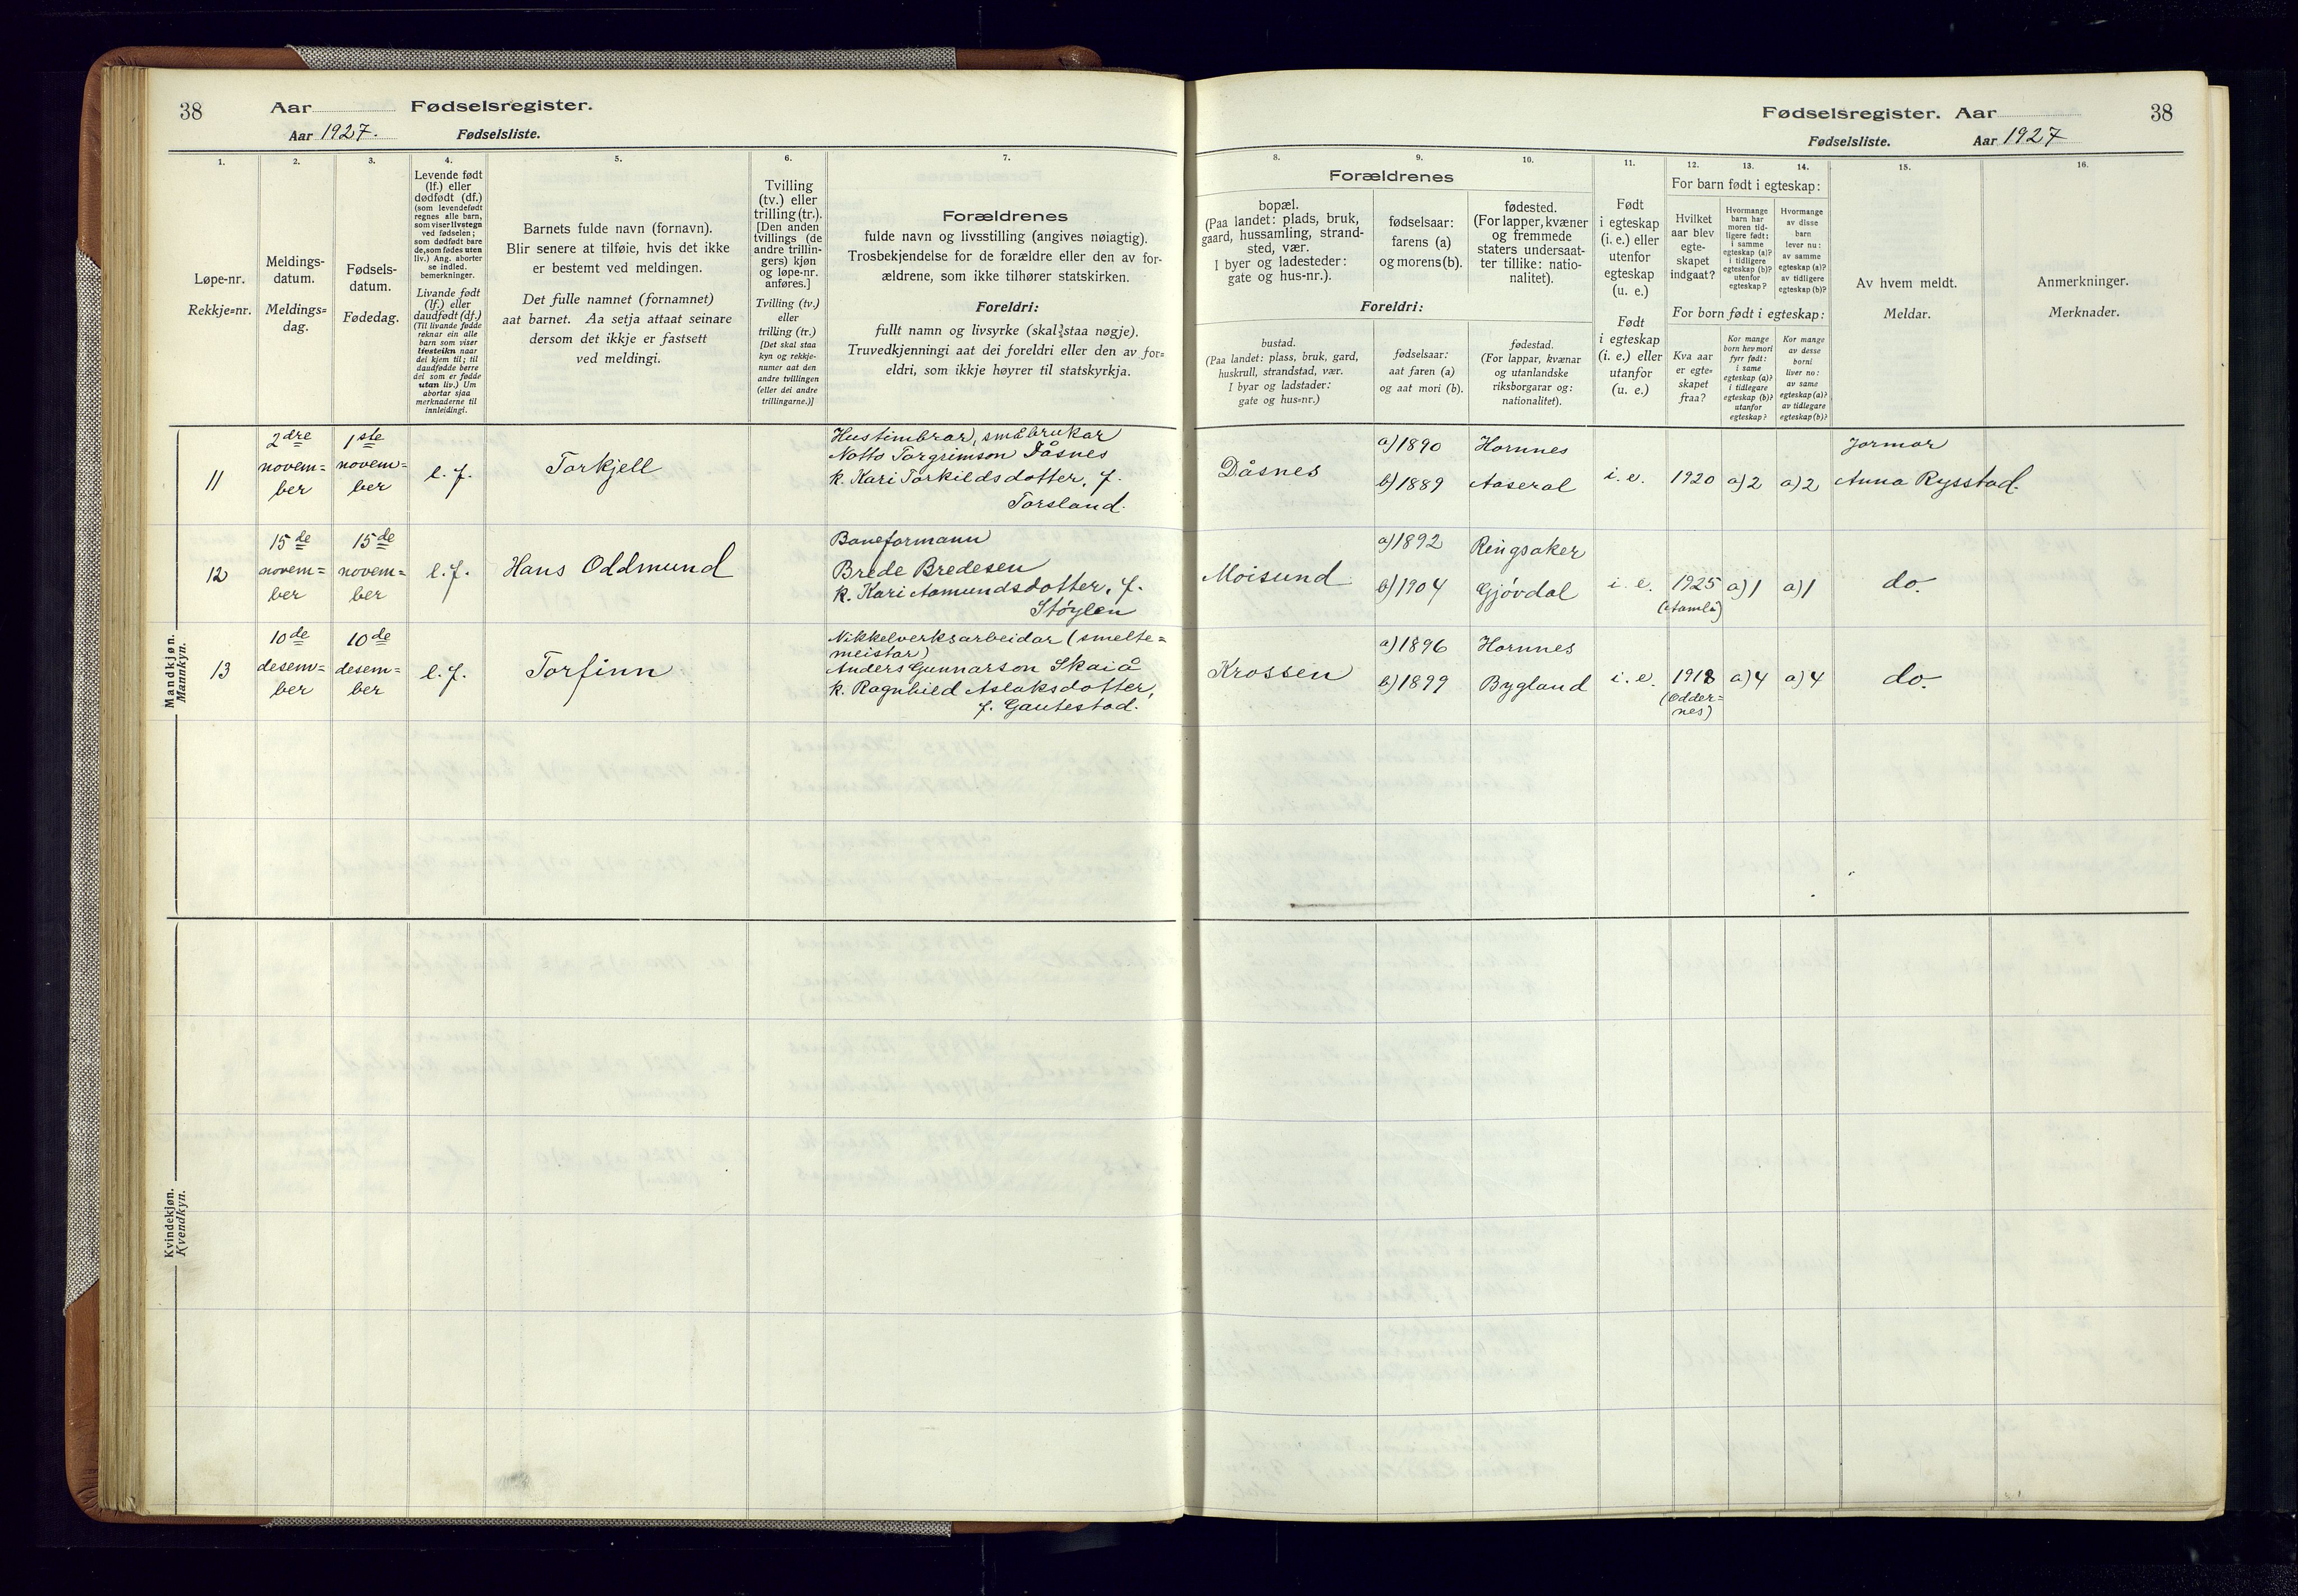 38 Aar Fødselsregister.
Aar 1927. Fødselsliste.
1. 2. 3. 4. 5. 6. 7.
Løpe-nr.
Rekkje=nr.
Meldings-
datum.
Meldings=
dag.
Fødsels-
datum.
Fødedag.
Levende født
(lf.) eller
dødfødt (df.)
(som levendefødt
regnes alle barn,
som viser livstegn
ved fødselen;
som dødfødt bare
de, som fødes uten
liv.) Ang. aborter
se indled.
bemerkninger.
Livande født
(lf.) eller
daudfødt (df.)
(Til livande fødde
reknar ein alle
barn som viser
livsteikn naar
dei kjem til; til
daudfødde berre
dei som er fødde
utan liv.) Um
abortar sjaa
merknaderne til
innleidingi.
Barnets fulde navn (fornavn).
Blir senere at tilføie, hvis det ikke
er bestemt ved meldingen.
Det fulle namnet (fornamnet)
aat barnet. Aa setja attaat seinare
dersom det ikkje er fastsett
ved meldingi.
Tvilling
(tv.) eller
trilling (tr.).
[Den anden
tvillings (de
andre trillin-
gers) kjøn
og løpe-nr.
anføres.]
Tvilling (tv.)
eller
trilling (tr.)
[Det skal staa
kyn og rekkje-
numer aat den
andre tvillingen
(eller dei andre
trillingarne.)]
Forældrenes
fulde navn og livsstilling (angives nøiagtig).
Trosbekjendelse for de forældre eller den av for-
ældrene, som ikke tilhører statskirken.
Foreldri:
fullt namn og livsyrke (skal staa nøgje).
Truvedkjenningi aat dei foreldri eller den av for=
eldri, som ikkje høyrer til statskyrkja.
Mandkjøn.
Mannkyn.
11
2dre
novem=
ber
1ste
novem=
ber
l. f.
Torkjell
Hustimbrar, småbrukar
Notto Torgrimson Dåsnes
k. Kari Torkildsdotter, f.
Torsland.
12
15de
novem=
ber
15de
novem=
ber
l. f.
Hans Oddmund
Baneformann
Brede Bredesen
k. Kari Aamundsdotter, f.
Støylen
13
10de
desem=
ber
10de
desem=
ber
l. f.
Torfinn
Nikkelverksarbeidar (smelte=
meistar)
Anders Gunnarson Skaiå
k. Ragnhild Aslaksdotter,
f. Gautestad.
Kvindekjøn.
Kvendkyn.
Fødselsregister. Aar 38
Fødselsliste. Aar 1927
8. 9. 10. 11. 12. 13. 14. 15. 16.
Forældrenes
bopæl.
(Paa landet: plads, bruk,
gaard, hussamling, strand-
sted, vær.
I byer og ladesteder:
gate og hus-nr.).
fødselsaar:
farens (a)
og morens (b).
fødested.
(For lapper, kvæner
og fremmede
staters undersaat-
ter tillike: natio-
nalitet).
Foreldri:
bustad.
(Paa landet: plass, bruk, gard,
huskrull, strandstad, vær.
I byar og ladstader:
gate og hus=nr.)
fødselsaar:
aat faren (a)
og aat mori (b).
fødestad.
(For lappar, kvænar
og utanlandske
riksborgarar og:
nationalitet).
Født
i egteskap
(i. e.) eller
utenfor
egteskap
(u. e.)
Født
i egteskap
(i. e.) eller
utanfor
(u. e.)
For barn født i egteskap:
Hvilket
aar blev
egte-
skapet
indgaat?
Hvormange
barn har
moren tid-
ligere født:
i samme
egteskap (a)?
i tidligere
egteskap (b)?
utenfor
egteskap?
Hvormange
av disse
barn
lever nu:
av samme
egteskap (a)?
av tidligere
egteskap (b)?
For born født i egteskap:
Kva aar
er egte-
skapet
fraa?
Kor mange
born hev mori
fyrr født:
i same
egteskap (a)?
i tidlegare
egteskap (b)?
utanfor
egteskap?
Kor mange
av desse
borni
liver no:
av same
egteskap (a)?
av tidlegare
egteskap (b)?
Av hvem meldt.
Meldar.
Anmerkninger.
Merknader.
Dåsnes
a) 1890 Hornnes
b) 1889 Aaseral
i. e. 1920 a) 2 a) 2
Jormor
Anna Rysstad.
Moisund
a) 1892 Ringsaker
b) 1904 Gjøvdal
i. e. 1925 a) 1 a) 1 do.
(Aamli)
Krossen
a) 1896 Hornnes
b) 1899 Bygland
i. e. 1918 a) 4 a) 4 do.
(Odder=
nes)